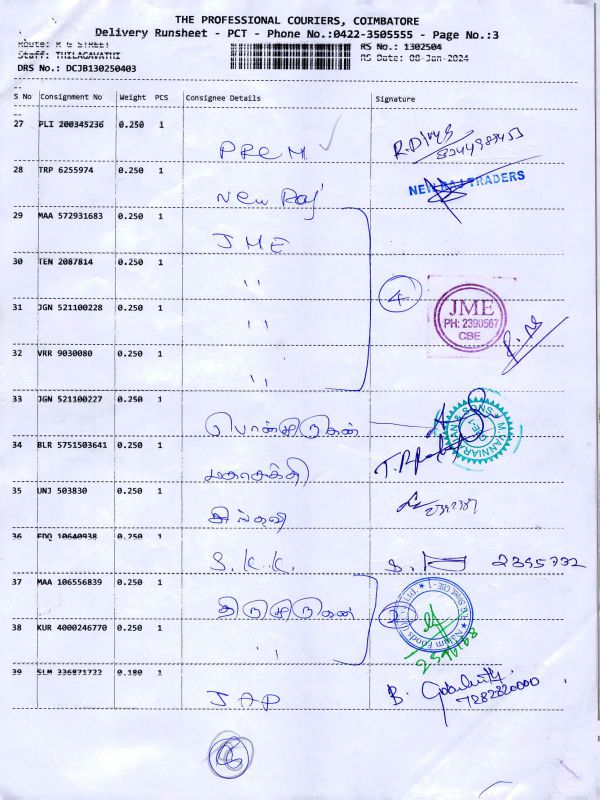 THE PROFESSIONAL COURIERS, COIMBATORE
Delivery Runsheet - PCT - Phone No.:0422-3505555 - Page No.:3
Route: R G STREET RS No.: 1302504
Staff: THILAGAVATHI RS Date: 08-Jan-2024
DRS No.: DCJB130250403
S No Consignment No Weight PCS Consignee Details Signature
27 PLI 200345236 0.250 1
PREM
28 TRP 6255974 0.250 1
NEW RAJ TRADERS
New Raj
29 MAA 572931683 0.250 1
JME
30 TEN 2087814 0.250 1
"
4
31 JGN 521100228 0.250 1
JME
PH: 2390567
CBE
"
32 VRR 9030080 0.250 1
"
33 JGN 521100227 0.250 1
M. VANNIAR & SONS
பொன்முருகன்
34 BLR 5751503641 0.250 1
மகாசக்தி
35 UNJ 503830 0.250 1
36 EDQ 10640938 0.250 1
S.K.K. 2395732
37 MAA 106556839 0.250 1
திருமுருகன் 2
38 KUR 4000246770 0.250 1
"
39 SLM 336871722 0.180 1
JAP B.